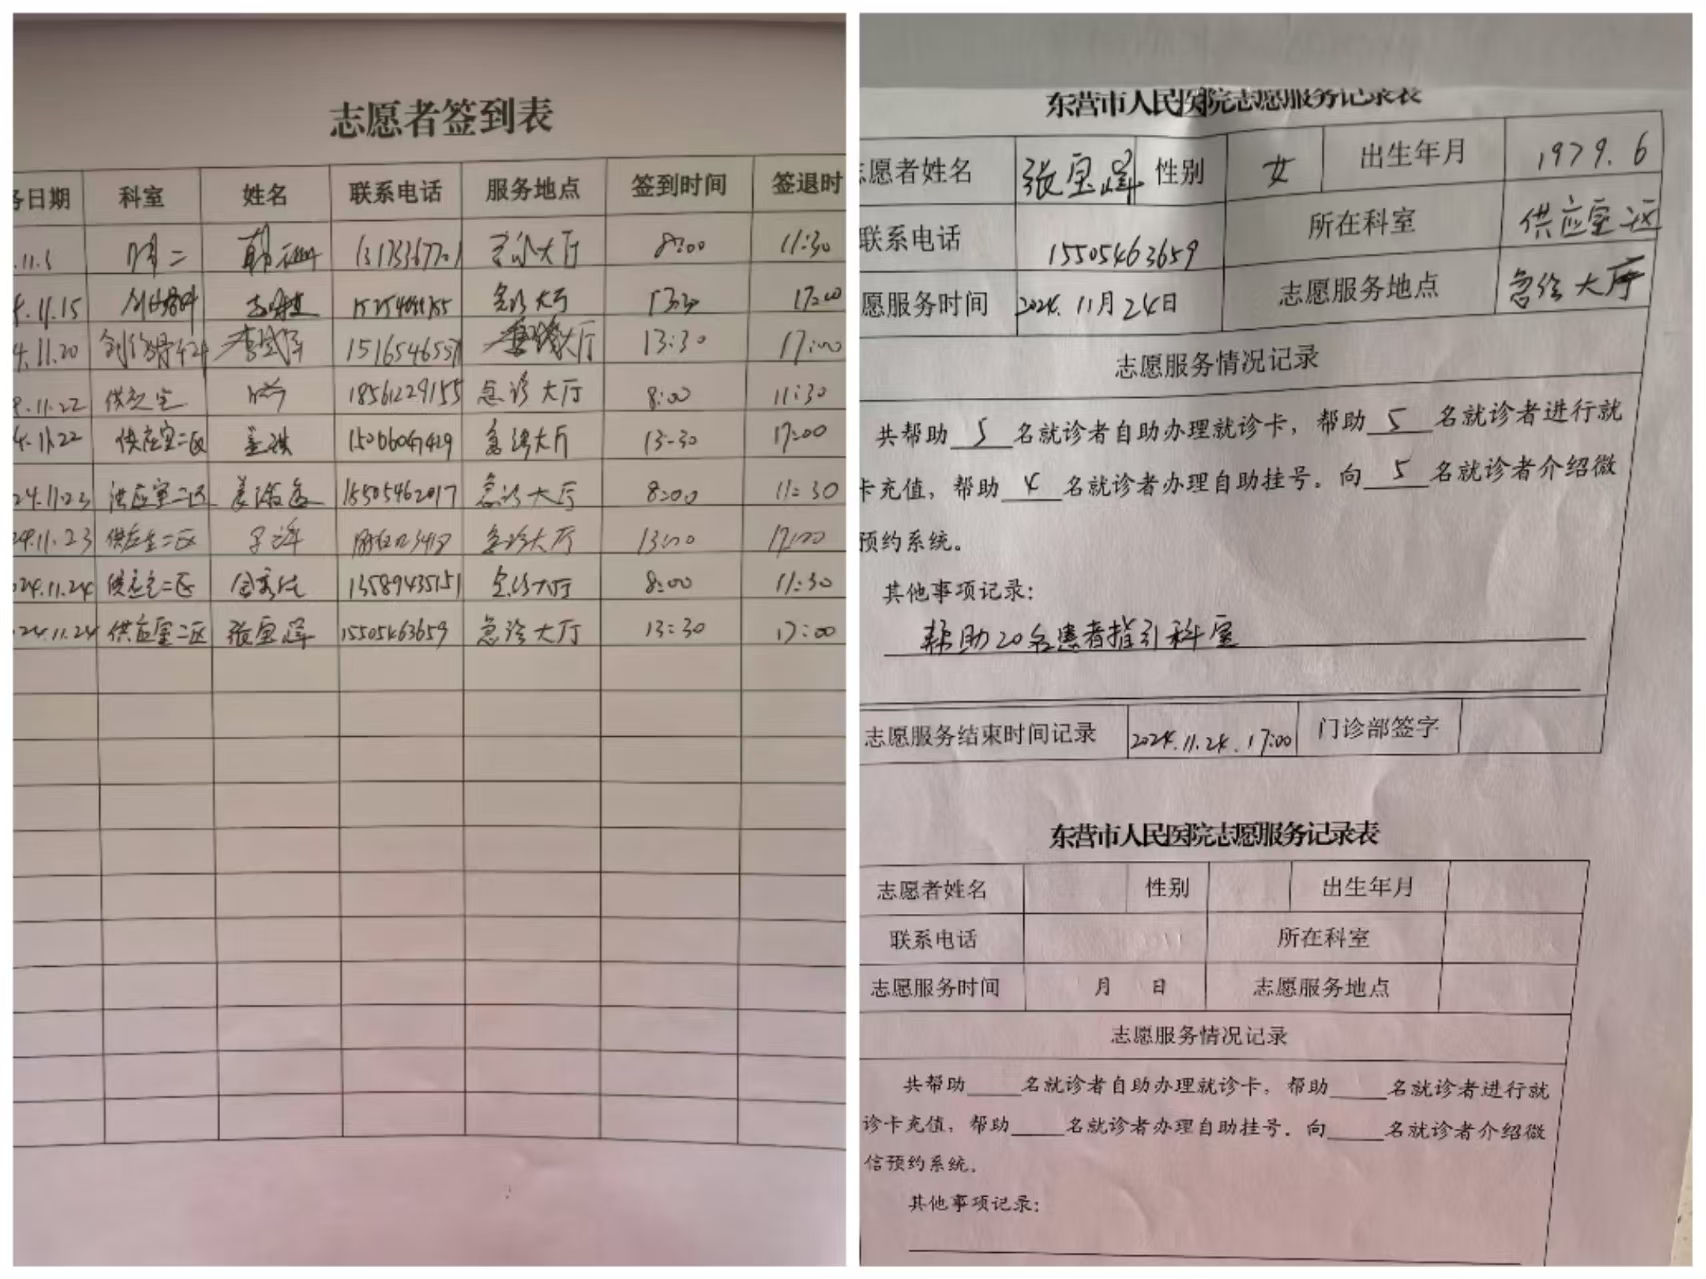 志愿者签到表
务日期 科室 姓名 联系电话 服务地点 签到时间 签退时
.11.3 二 大厅 8:00 11:30
4.11.15 创伤骨科 急诊大厅 17:00
4.11.20 创伤骨科 大厅 13:30 17:00
.11.22 供应室 18561229155 急诊大厅 8:00 11:30
4.11.22 供应室二区 急诊大厅 13-30 17:00
24.11.23 供应室二区 15505462017 急诊大厅 8:00 11:30
24.11.23 供应室二区 急诊大厅 17:00
024.11.24 供应室二区 13589435151 急诊大厅 8:00 11:30
024.11.24 供应室二区 张宝峰 15505463659 急诊大厅 13:30 17:00
东营市人民医院志愿服务记录表
志愿者姓名 张宝峰 性别 女 出生年月 1979.6
联系电话 15505463659 所在科室 供应室二区
愿服务时间 2024.11月24日 志愿服务地点 急诊大厅
志愿服务情况记录
共帮助 5 名就诊者自助办理就诊卡，帮助 5 名就诊者进行就
卡充值，帮助 4 名就诊者办理自助挂号。向 5 名就诊者介绍微
预约系统。
其他事项记录：
帮助20名患者指引科室
志愿服务结束时间记录 2024.11.24.17:00 门诊部签字
东营市人民医院志愿服务记录表
志愿者姓名 性别 出生年月
联系电话 所在科室
志愿服务时间 月 日 志愿服务地点
志愿服务情况记录
共帮助_____名就诊者自助办理就诊卡，帮助_____名就诊者进行就
诊卡充值，帮助_____名就诊者办理自助挂号。向_____名就诊者介绍微
信预约系统。
其他事项记录：